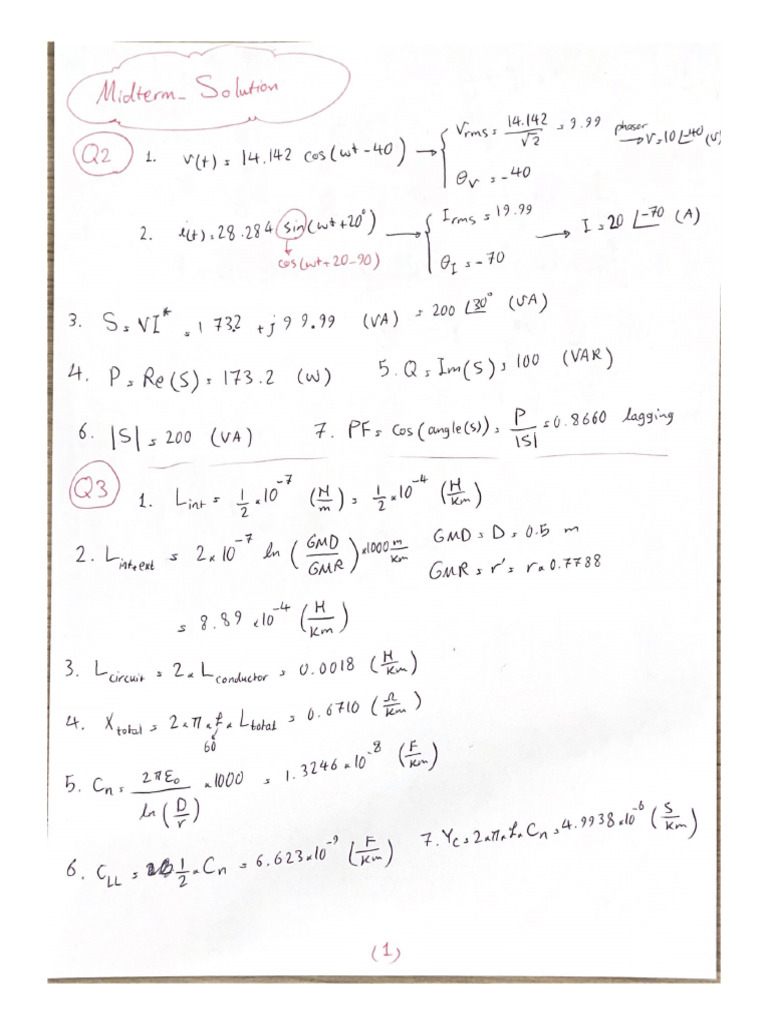 Midterm_Solution
Q2 1. v(t) = 14.142 cos(wt-40) → { Vrms = 14.142/√2 = 9.99 phasor → V=10∠-40 (V)
θv = -40
2. i(t) = 28.284 sin(wt+20°) → { Irms = 19.99 → I = 20 ∠-70 (A)
cos(wt+20-90)
θI = -70
3. S = VI* = 173.2 + j 99.99 (VA) = 200 ∠30° (VA)
4. P = Re(S) = 173.2 (W) 5. Q = Im(S) = 100 (VAR)
6. |S| = 200 (VA) 7. PF = cos(angle(s)) = P/|S| = 0.8660 lagging
Q3 1. Lint = 1/2 × 10^-7 (H/m) = 1/2 × 10^-4 (H/Km)
2. Lint+ext = 2 × 10^-7 ln (GMD/GMR) × 1000 m/Km GMD = D = 0.5 m
GMR = r' = r × 0.7788
= 8.89 × 10^-4 (H/Km)
3. Lcircuit = 2 × Lconductor = 0.0018 (H/Km)
4. Xtotal = 2 × π × f × Ltotal = 0.6710 (Ω/Km)
60
5. Cn = 2πε₀/ln(D/r) × 1000 = 1.3246 × 10^-8 (F/Km)
6. CLL = 1/2 × Cn = 6.623 × 10^-9 (F/Km) 7. Yc = 2 × π × f × Cn = 4.9938 × 10^-6 (S/Km)
(1)